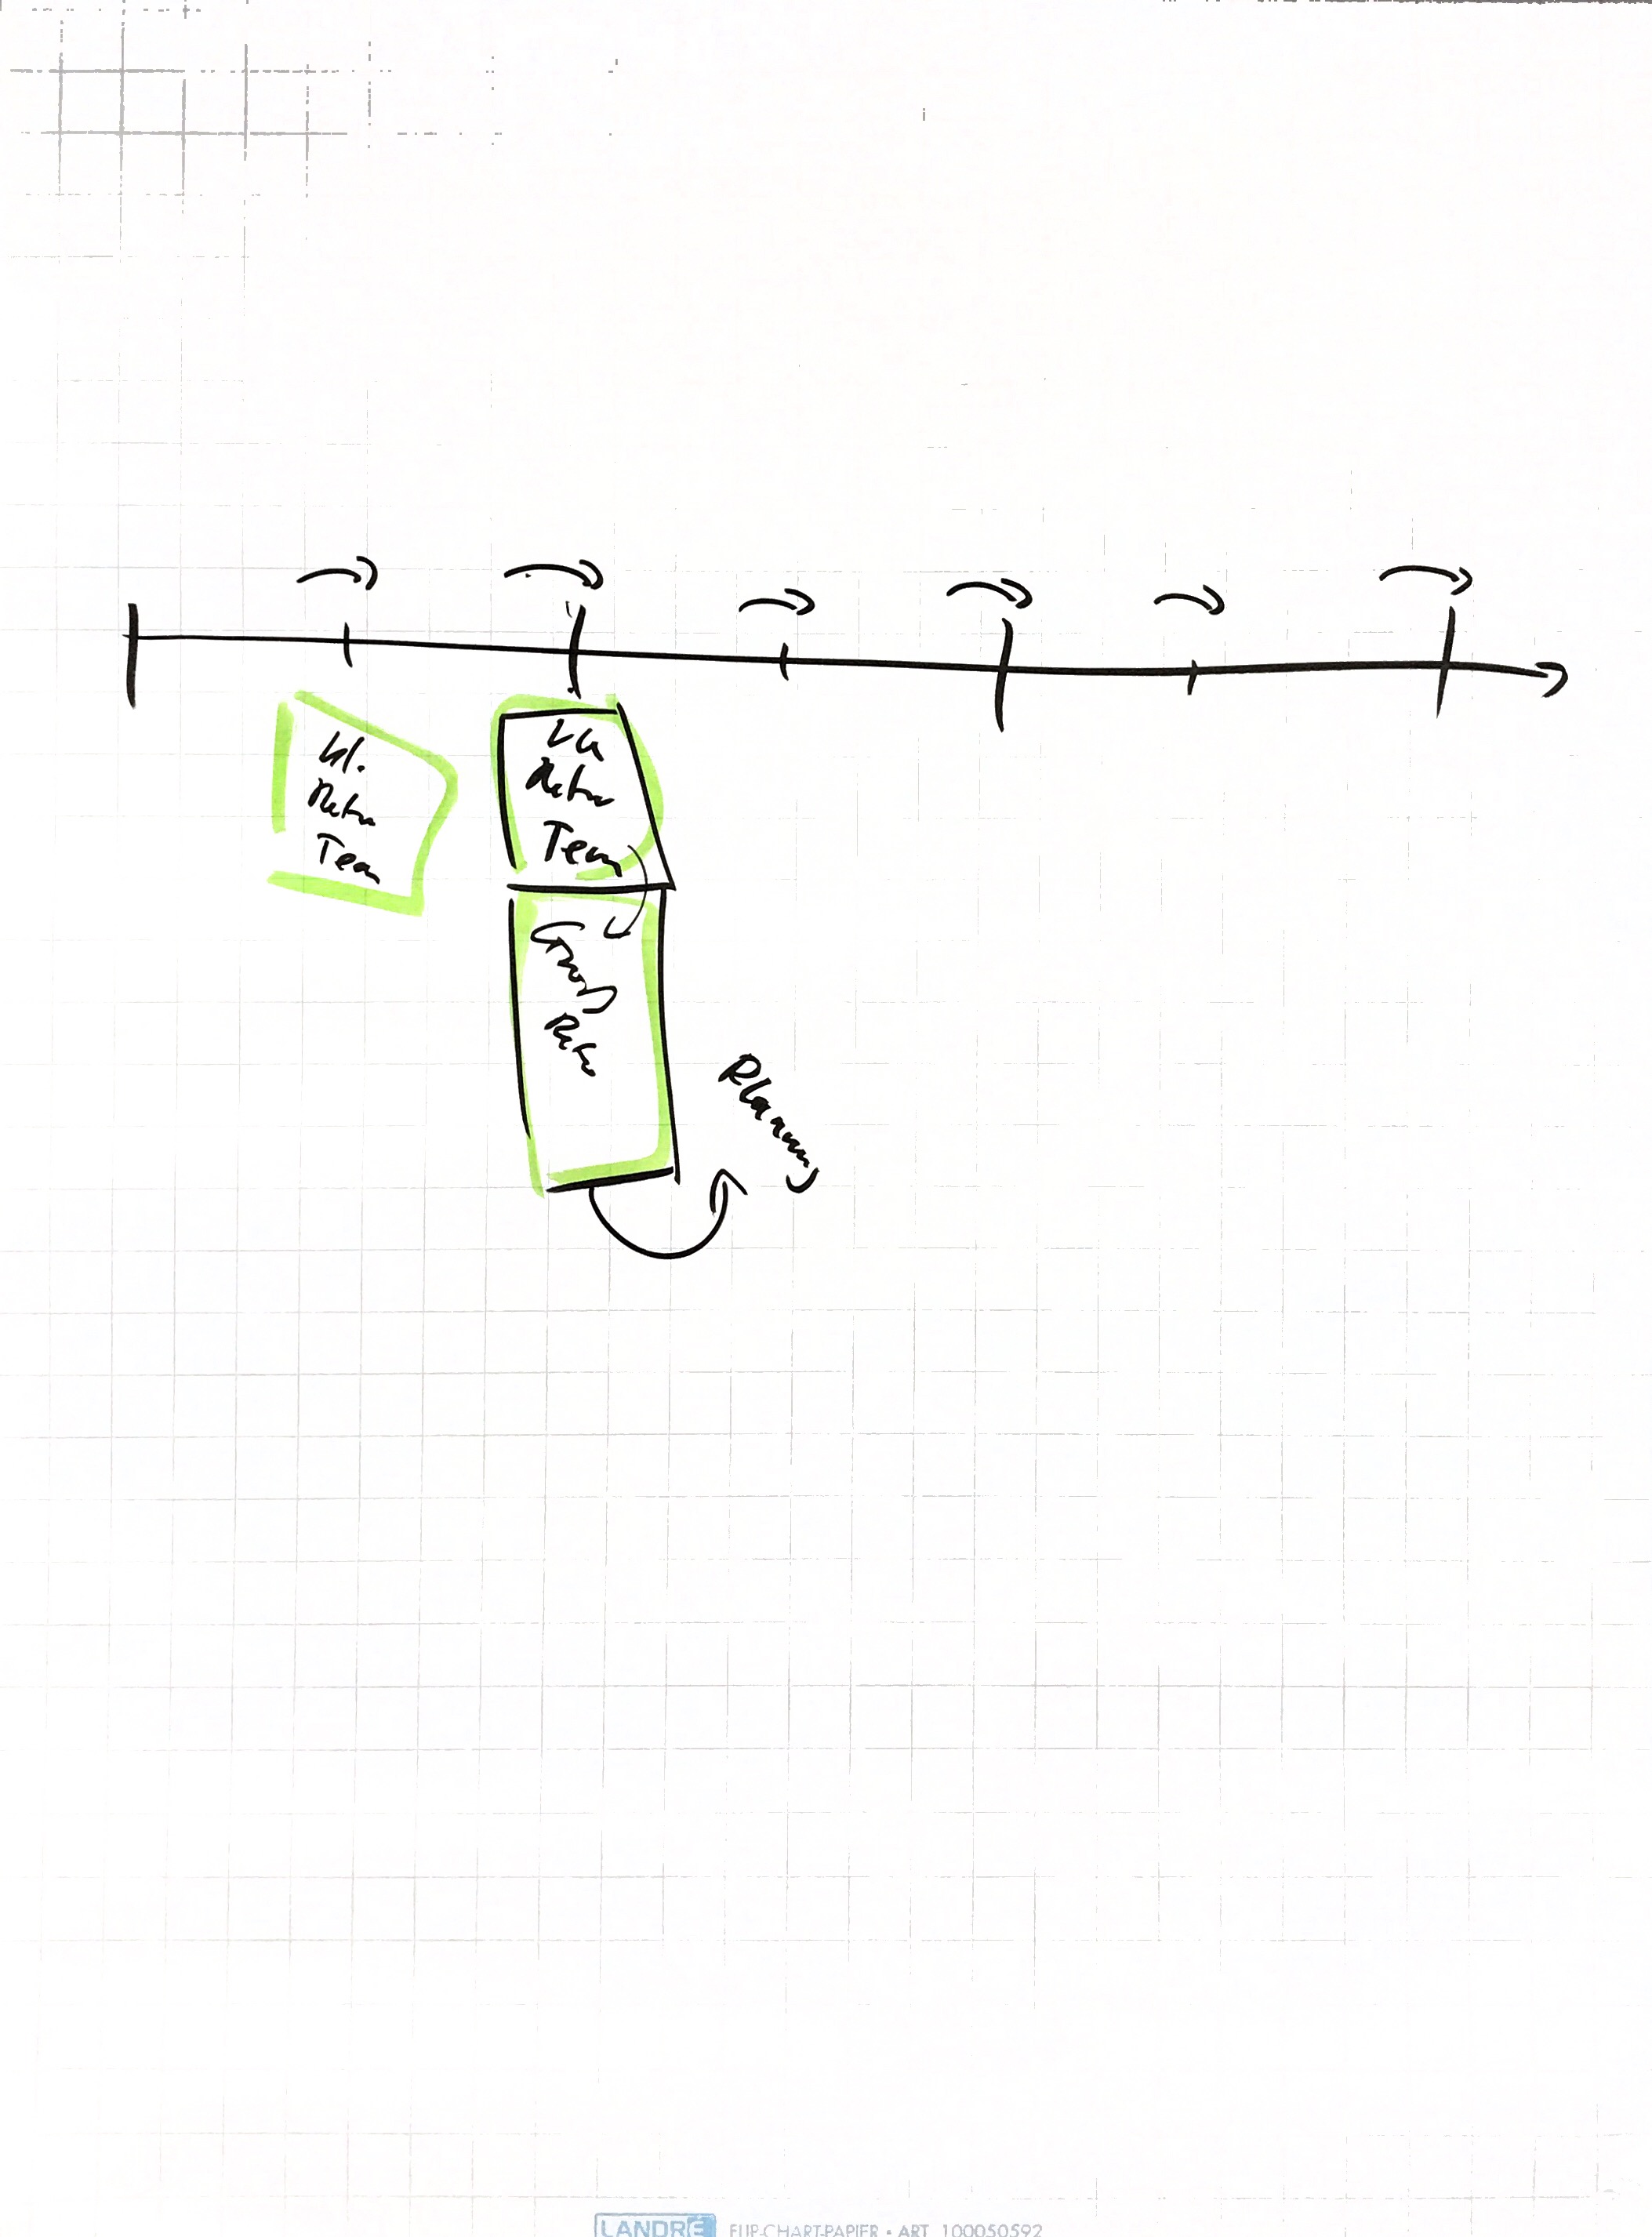 kl.
Retro
Team
Retro
Team
Groß
Retro
Planning
LANDRÉ FLIP-CHART-PAPIER • ART. 100050592